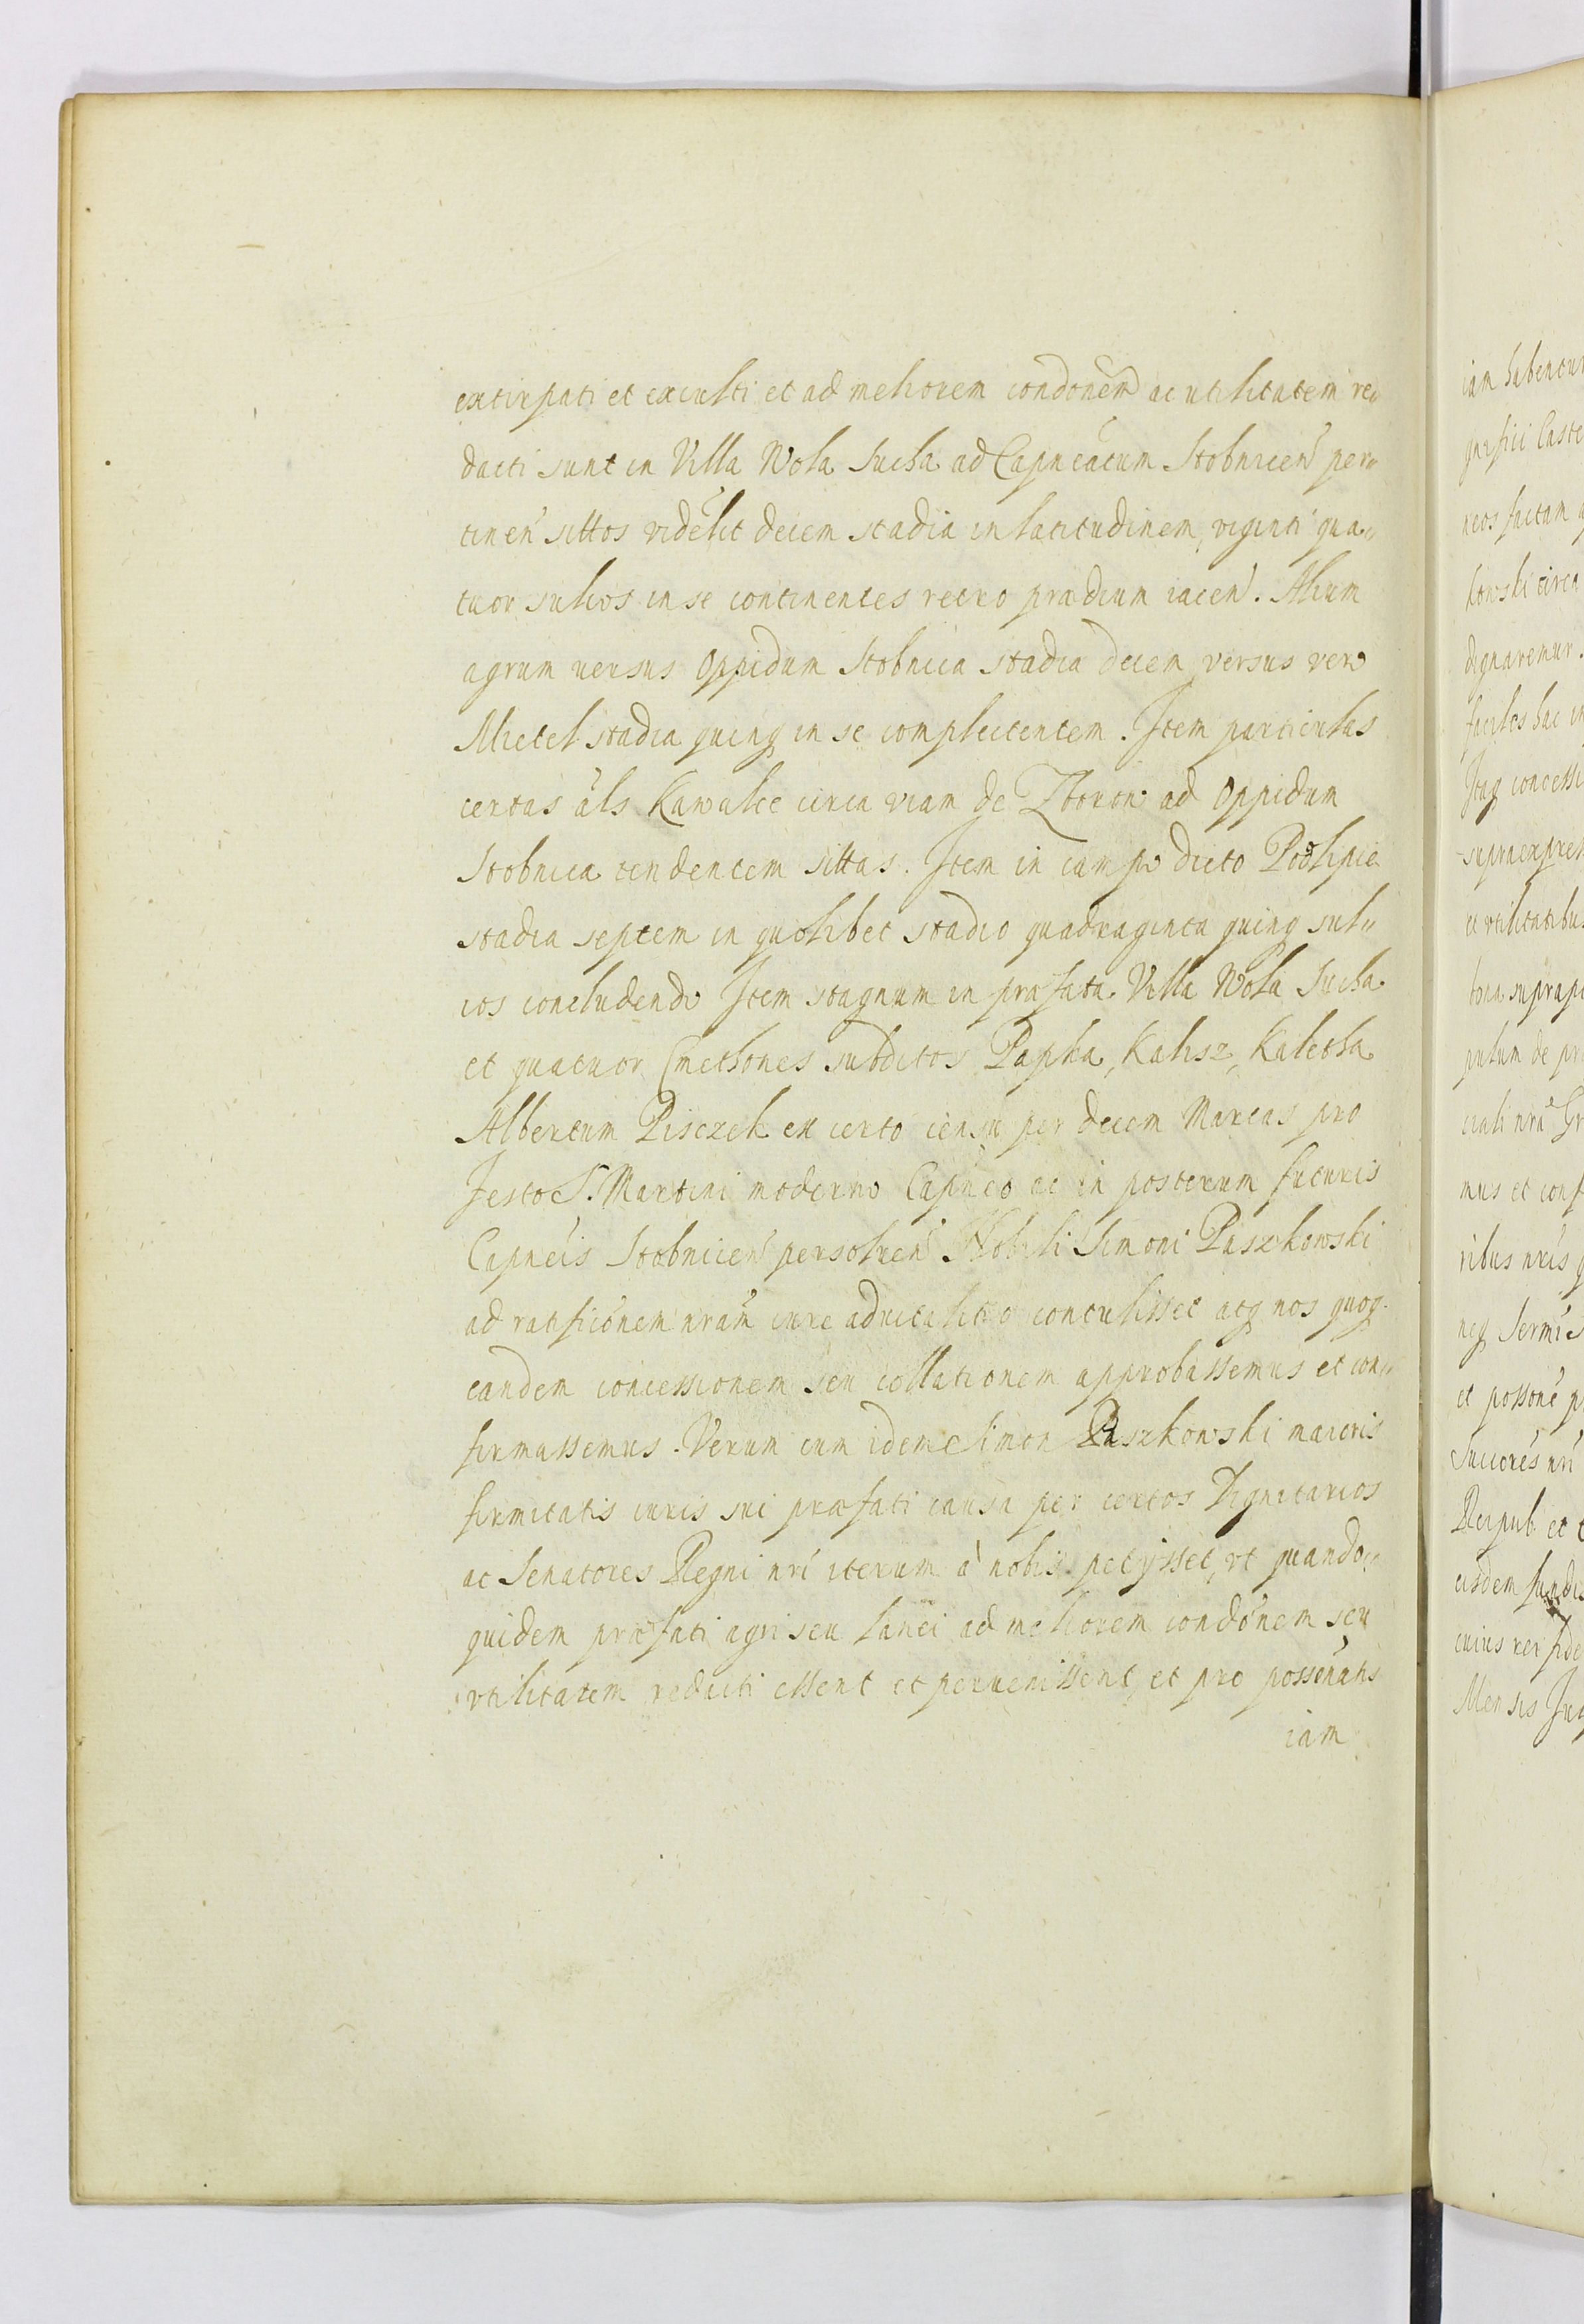 extirpati et exculti et ad meliorem condonem ac utilitatem re„
dacti sunt in Villa Wola Sucha ad Capneatum Stobnicen per„
tinen sittos videlit decem stadia in latitudinem, viginti qua„
tuor sulcos in se continentes retro prædium iacen. Alium
agrum uersus Oppidum Stobnica stadia decem versus vero
Mietel stadia quinq in se complectentem. Item particulas
certas als Kawalce circa viam de Zborow ad Oppidum
Stobnica tendentem sittas. Item in campo dicto Podlipie
stadia septem in quolibet stadio quadraginta quinq sul„
cos concludendo Item stagnum in præfata Villa Wola Sucha
et quatuor Cmethones subditos Papka, Kalisz, Kaletha
Albertum Pisczek ex certo censu per decem Marcas pro
Festo S. Martini moderno Capneo ac in posterum futuris
Capneis Stobnicen persoluen Nobili Simoni Paszkowski
ad ratificionem nram iure aduitalitio contulisset atq nos quoq
eandem concessionem seu collationem approbassemus et con„
firmassemus. Verum cum idem Simon Paszkowski maioris
firmitatis iuris sui præfati causa per certos Dignitarios
ac Senatores Regni nri iterum à nobis petijsset, vt quando„
quidem præfati agri seu lanei ad meliorem condonem seu
vtilitatem reducti essent et peruenissent, et pro possenatis
iam
iam habentur
kowski circa
dignaremur.
et vtilitatibus
mus et conf
ribus nris q
Mensis